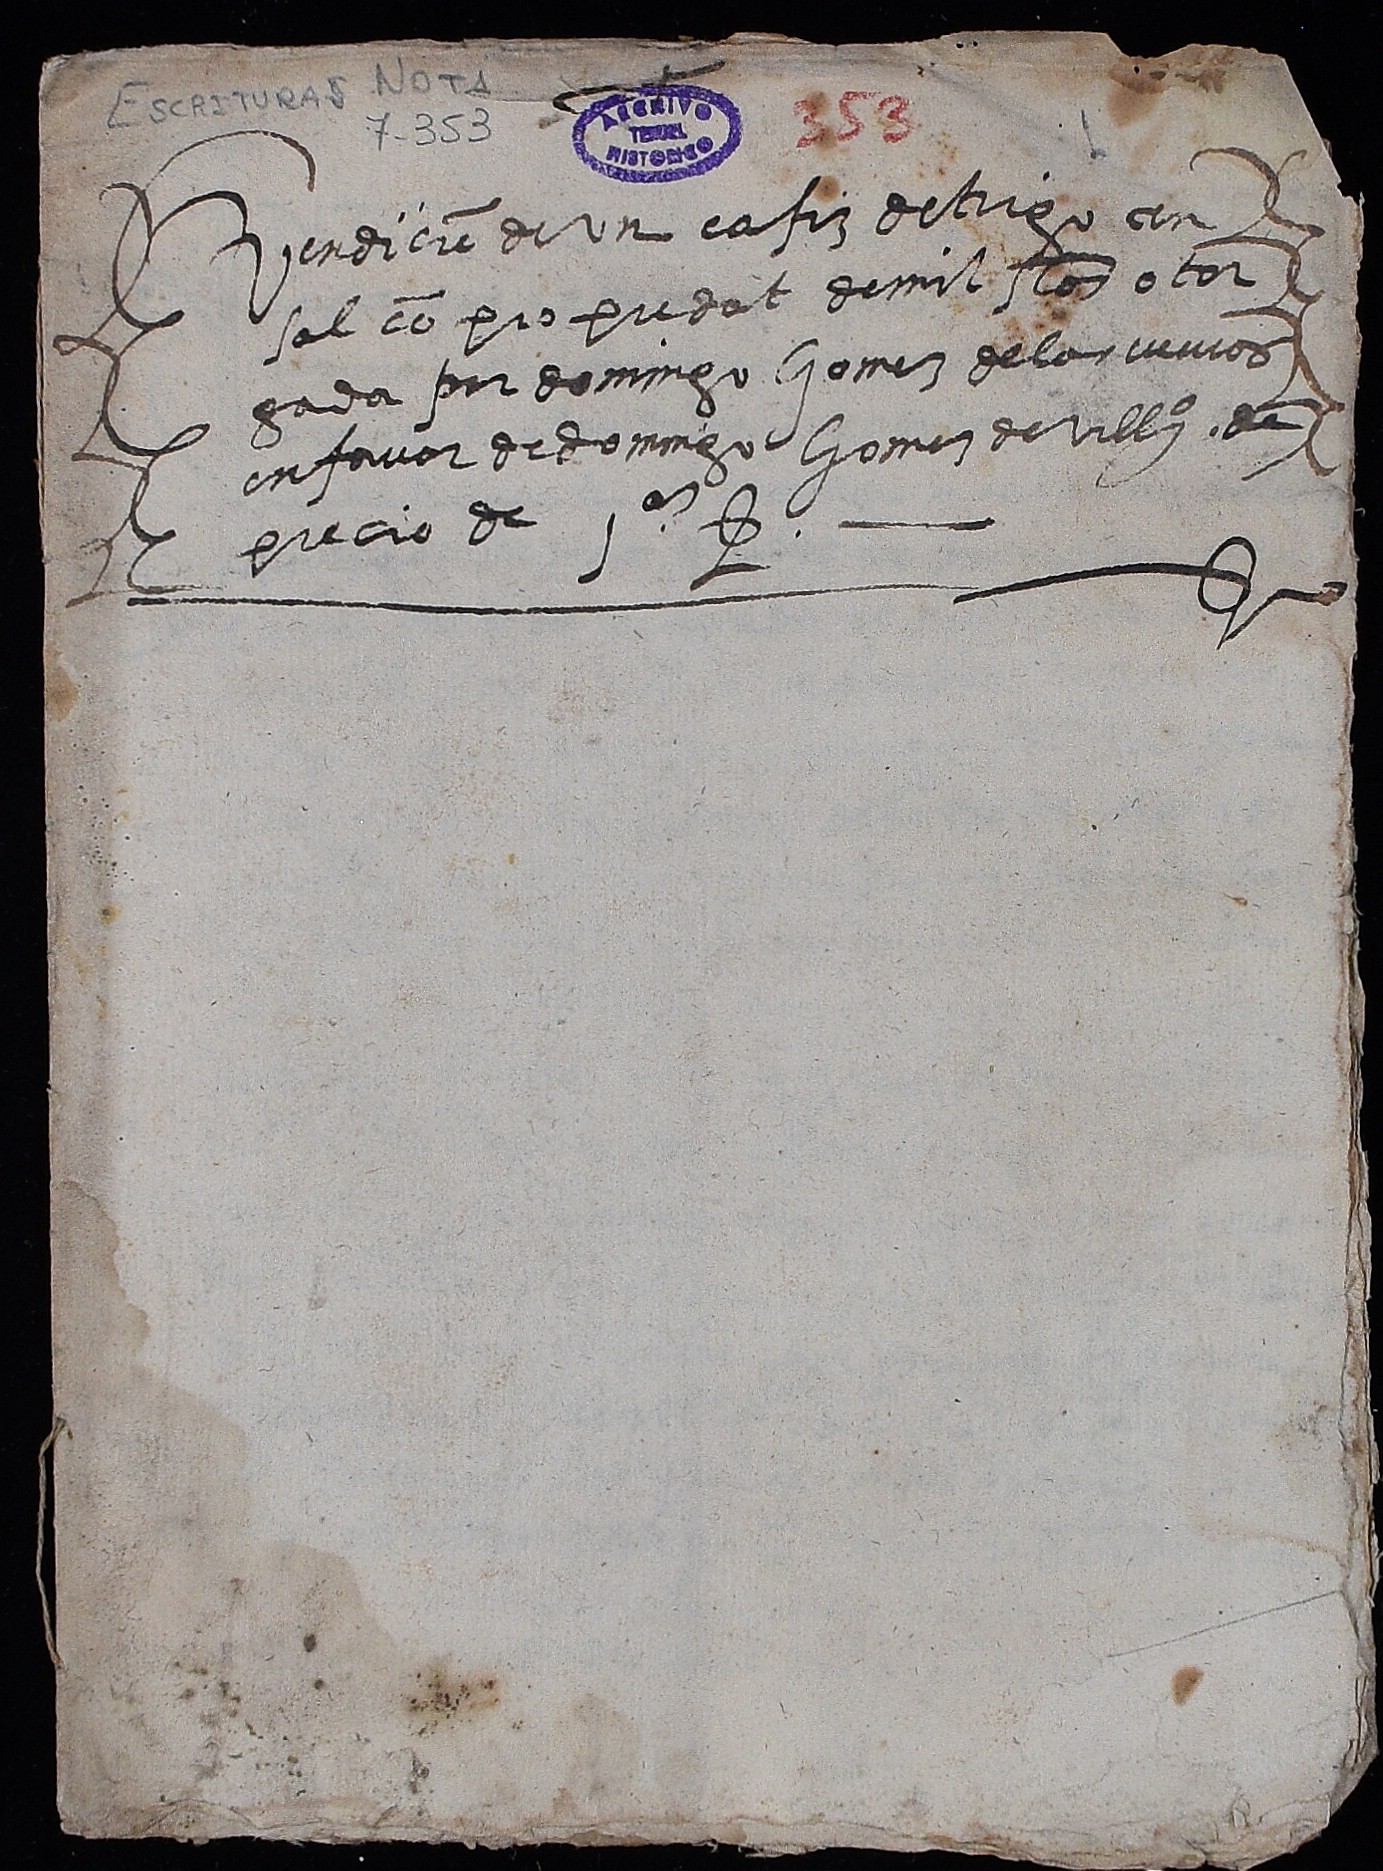 ESCRITURAS NOTA
7-353
ARCHIVO
TERUEL
HISTORICO
353
Vendiciõ de un cafiz de trigo cen
sal cõ propiedat de mil otor
gada por domingo Gomez de las cuevas
en favor de domingo Gomez de vill. de
precio de